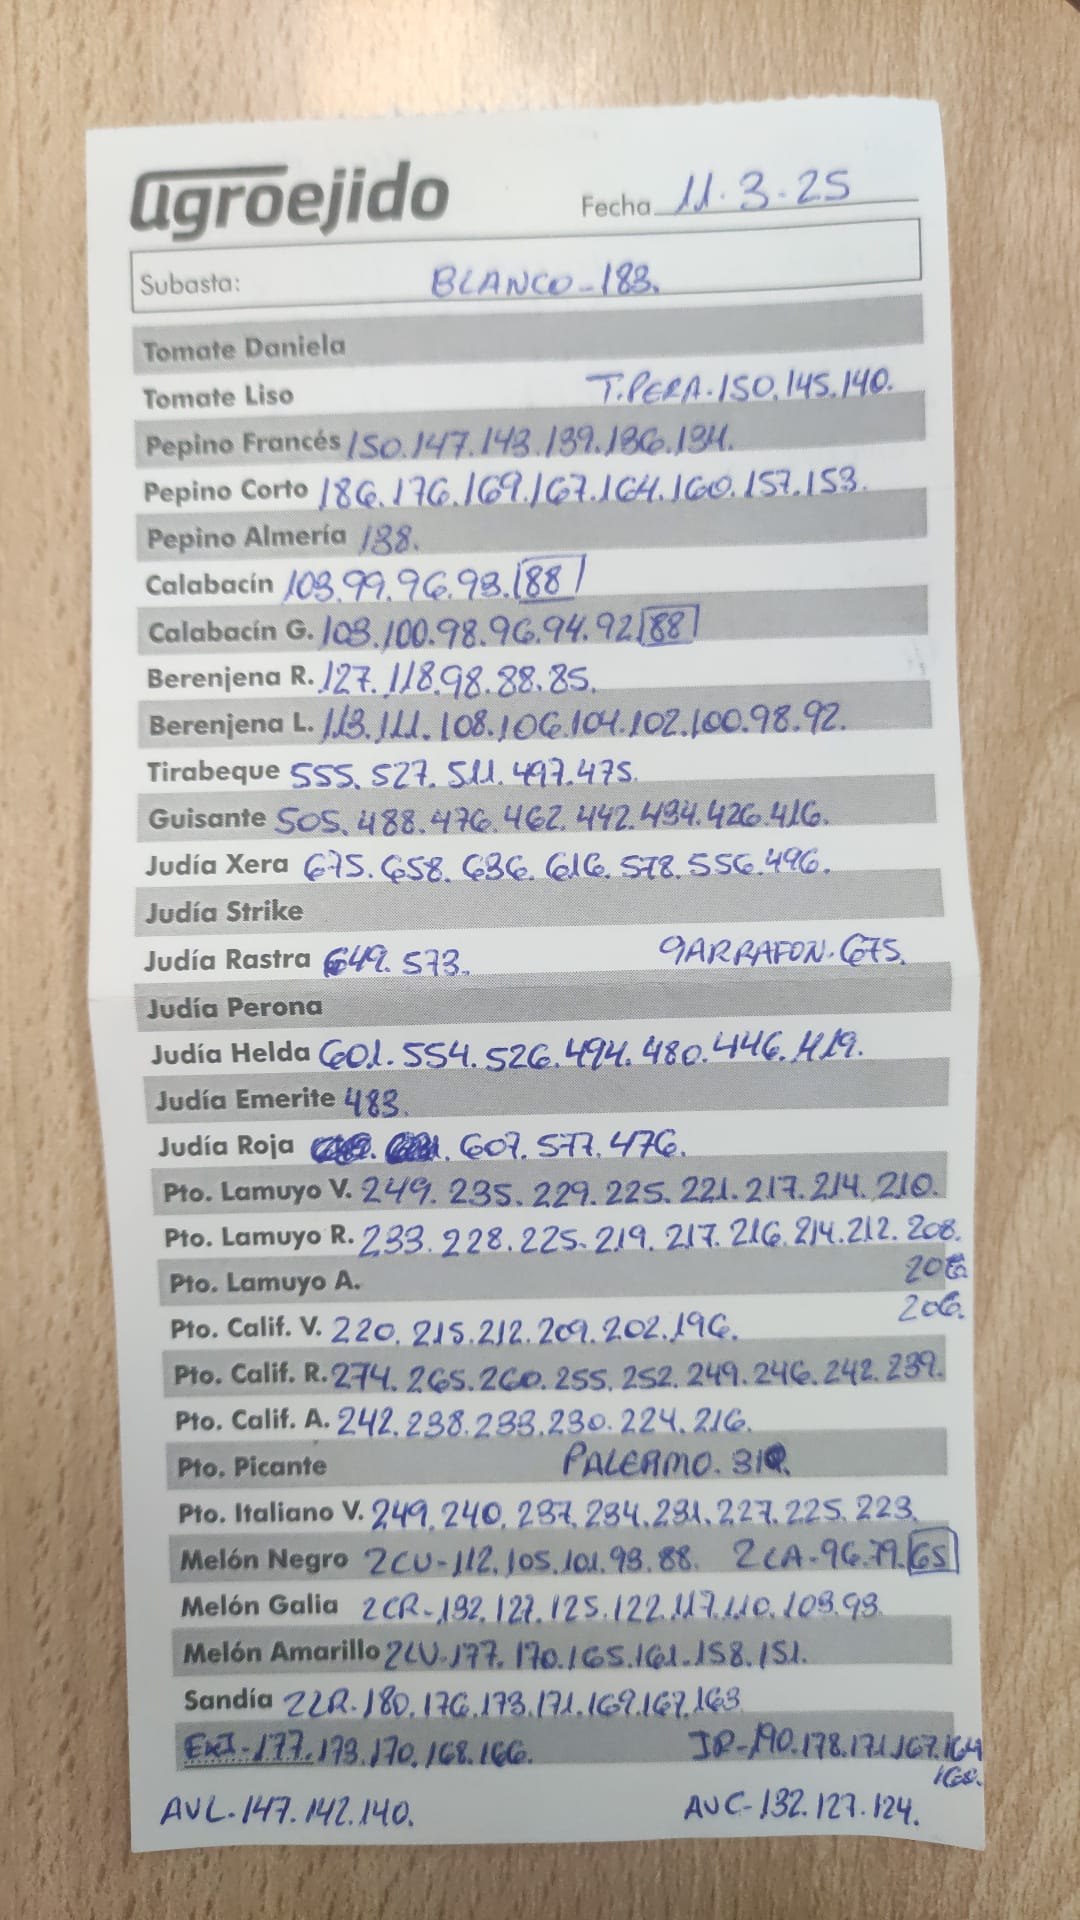 agroejido Fecha 11.3.25
Subasta: BLANCO-183.
Tomate Daniela
Tomate Liso T.PERA.150.145.140.
Pepino Francés 150.147.143.139.136.134.
Pepino Corto 186.176.169.167.164.160.157.153.
Pepino Almería 138.
Calabacín 103.99.96.93.88
Calabacín G. 103.100.98.96.94.92 88
Berenjena R. 127.118.98.88.85.
Berenjena L. 113.111.108.106.104.102.100.98.92.
Tirabeque 555.527.511.497.475.
Guisante 505.488.476.462.442.434.426.416.
Judía Xera 675.658.636.616.578.556.496.
Judía Strike
Judía Rastra 649.573. GARRAFON.675.
Judía Perona
Judía Helda 601.554.526.494.480.446.419.
Judía Emerite 483.
Judía Roja 607.577.476.
Pto. Lamuyo V. 249.235.229.225.221.217.214.210.
Pto. Lamuyo R. 233.228.225.219.217.216.214.212.208.
Pto. Lamuyo A.
206.
Pto. Calif. V. 220.215.212.209.202.196.
Pto. Calif. R. 274.265.260.255.252.249.246.242.239.
Pto. Calif. A. 242.238.233.230.224.216.
Pto. Picante PALERMO.
Pto. Italiano V. 249.240.237.234.231.227.225.223.
Melón Negro 2CU-112.105.101.93.88. 2CA-96.79.65
Melón Galia 2CR-132.127.125.122.117.110.103.93.
Melón Amarillo 2LV-177.170.165.161.158.151.
Sandía 2LR-180.176.173.171.169.167.163
EXI-177.173.170.168.166. JR-190.178.171.167.164
AVL-147.142.140. AVC-132.127.124.